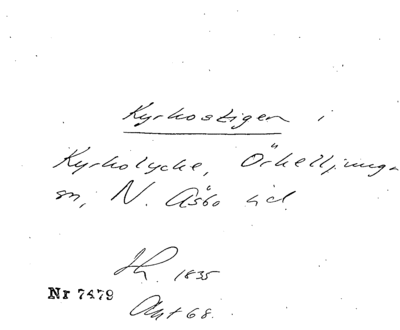 Kyrkostigen i
Kyrkolycke, Örkelljunga
sn, N. Åsbo hd.
Jh. 1835
Nr 7479
Okt 68.